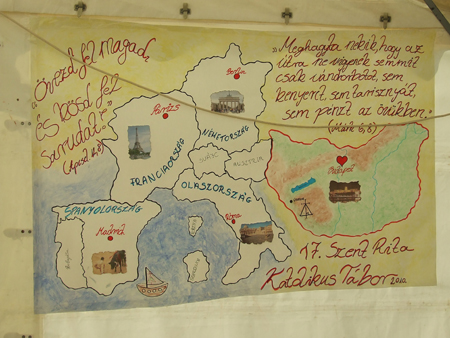 „Övezd fel magad,
és kösd fel
sarudat!"
(ApCsel 12,8)
„Meghagyta nekik, hogy az
útra ne vigyenek semmit
csak vándorbotot, sem
kenyeret, sem tarisznyát,
sem pénzt az övükben.
(Márk 6,8)
Berlin
NÉMETORSZÁG
Párizs
FRANCIAORSZÁG
SVÁJC
AUSZTRIA
OLASZORSZÁG
Róma
SPANYOLORSZÁG
Madrid
17. Szent Rita
Katolikus Tábor 2010